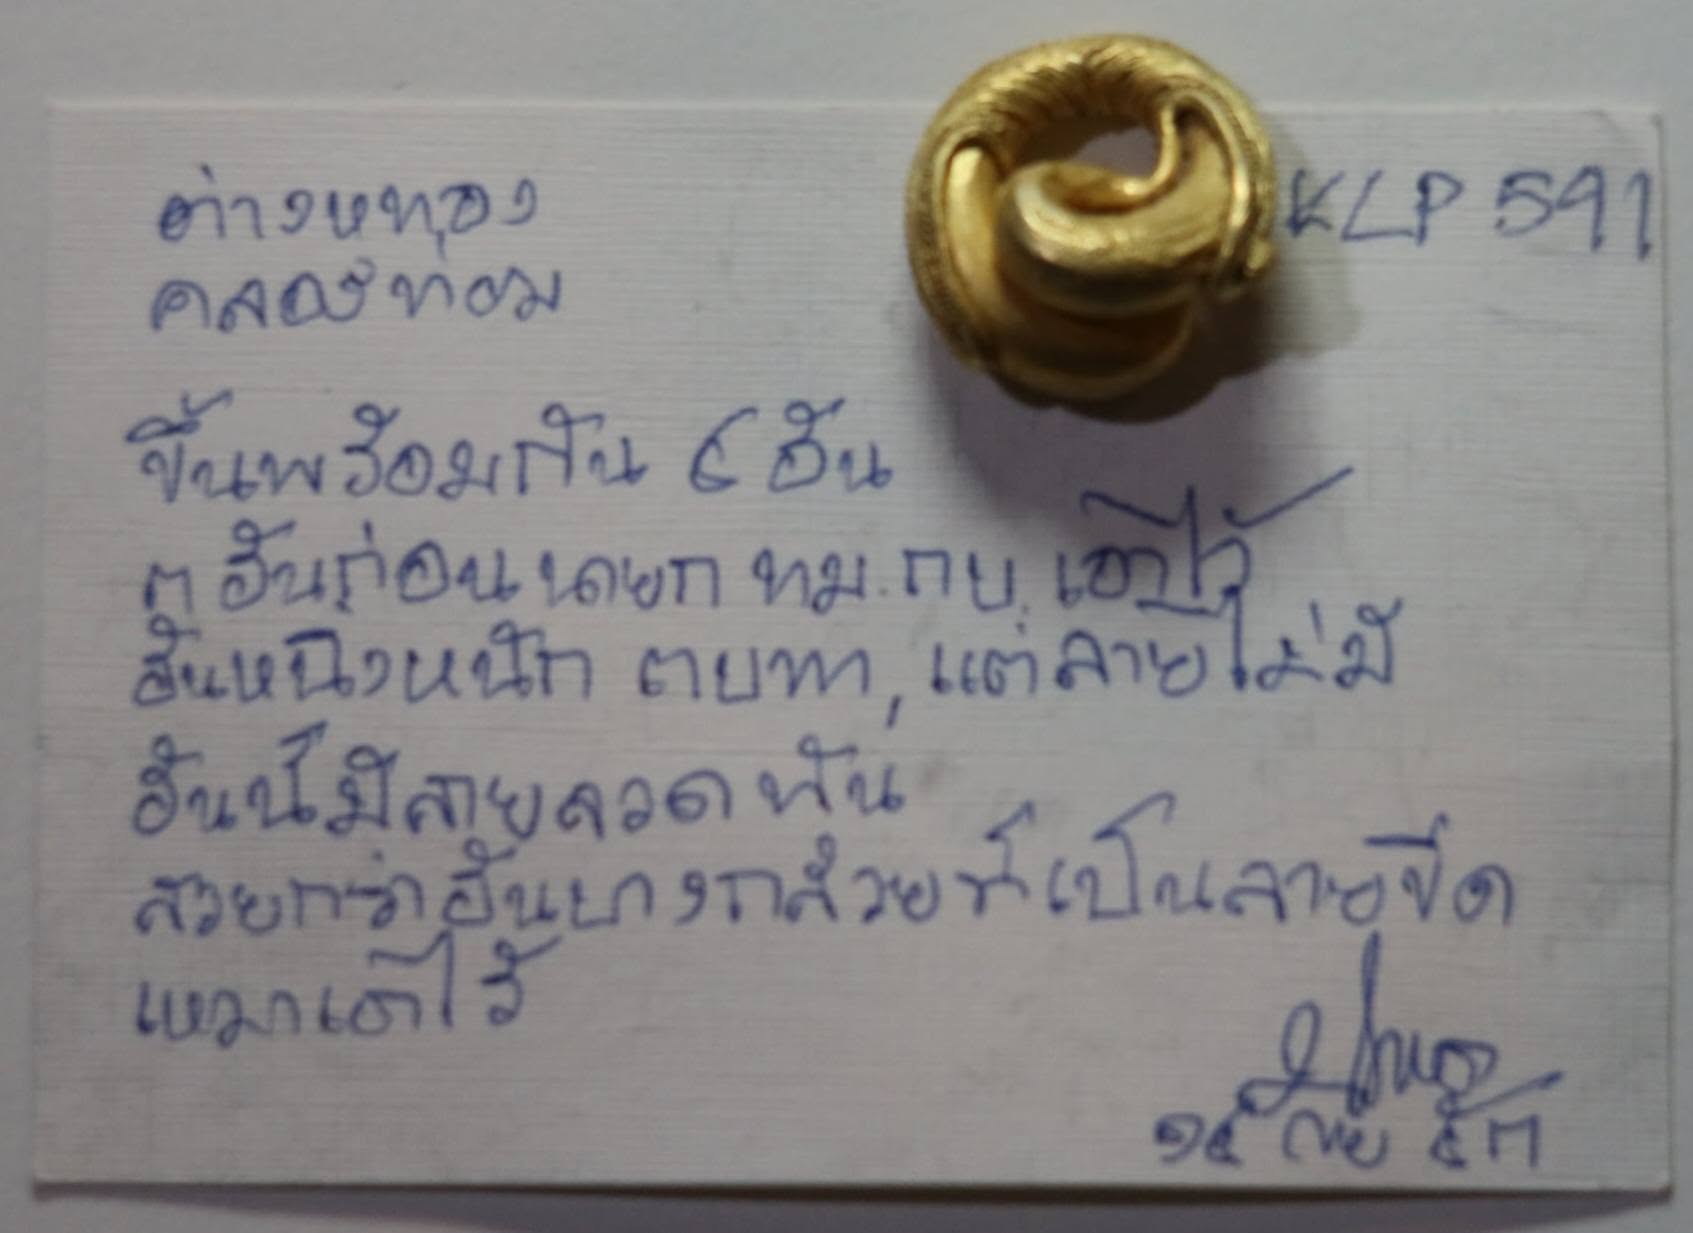 ต่างหูทอง
KLP 591
คลองท่อม
ขึ้นพร้อมกัน ๔ อัน
๓ อันก่อน นายก ทม. กบ. เอาไว้
อันหนึ่งหนัก ๓ บาท, แต่ลายไม่มี
อันนี้มีลายลวดพัน
สวยกว่าอันบางกล้วยที่เป็นลายขีด
เหมาเอาไว้
๑๕ กย ๕๓